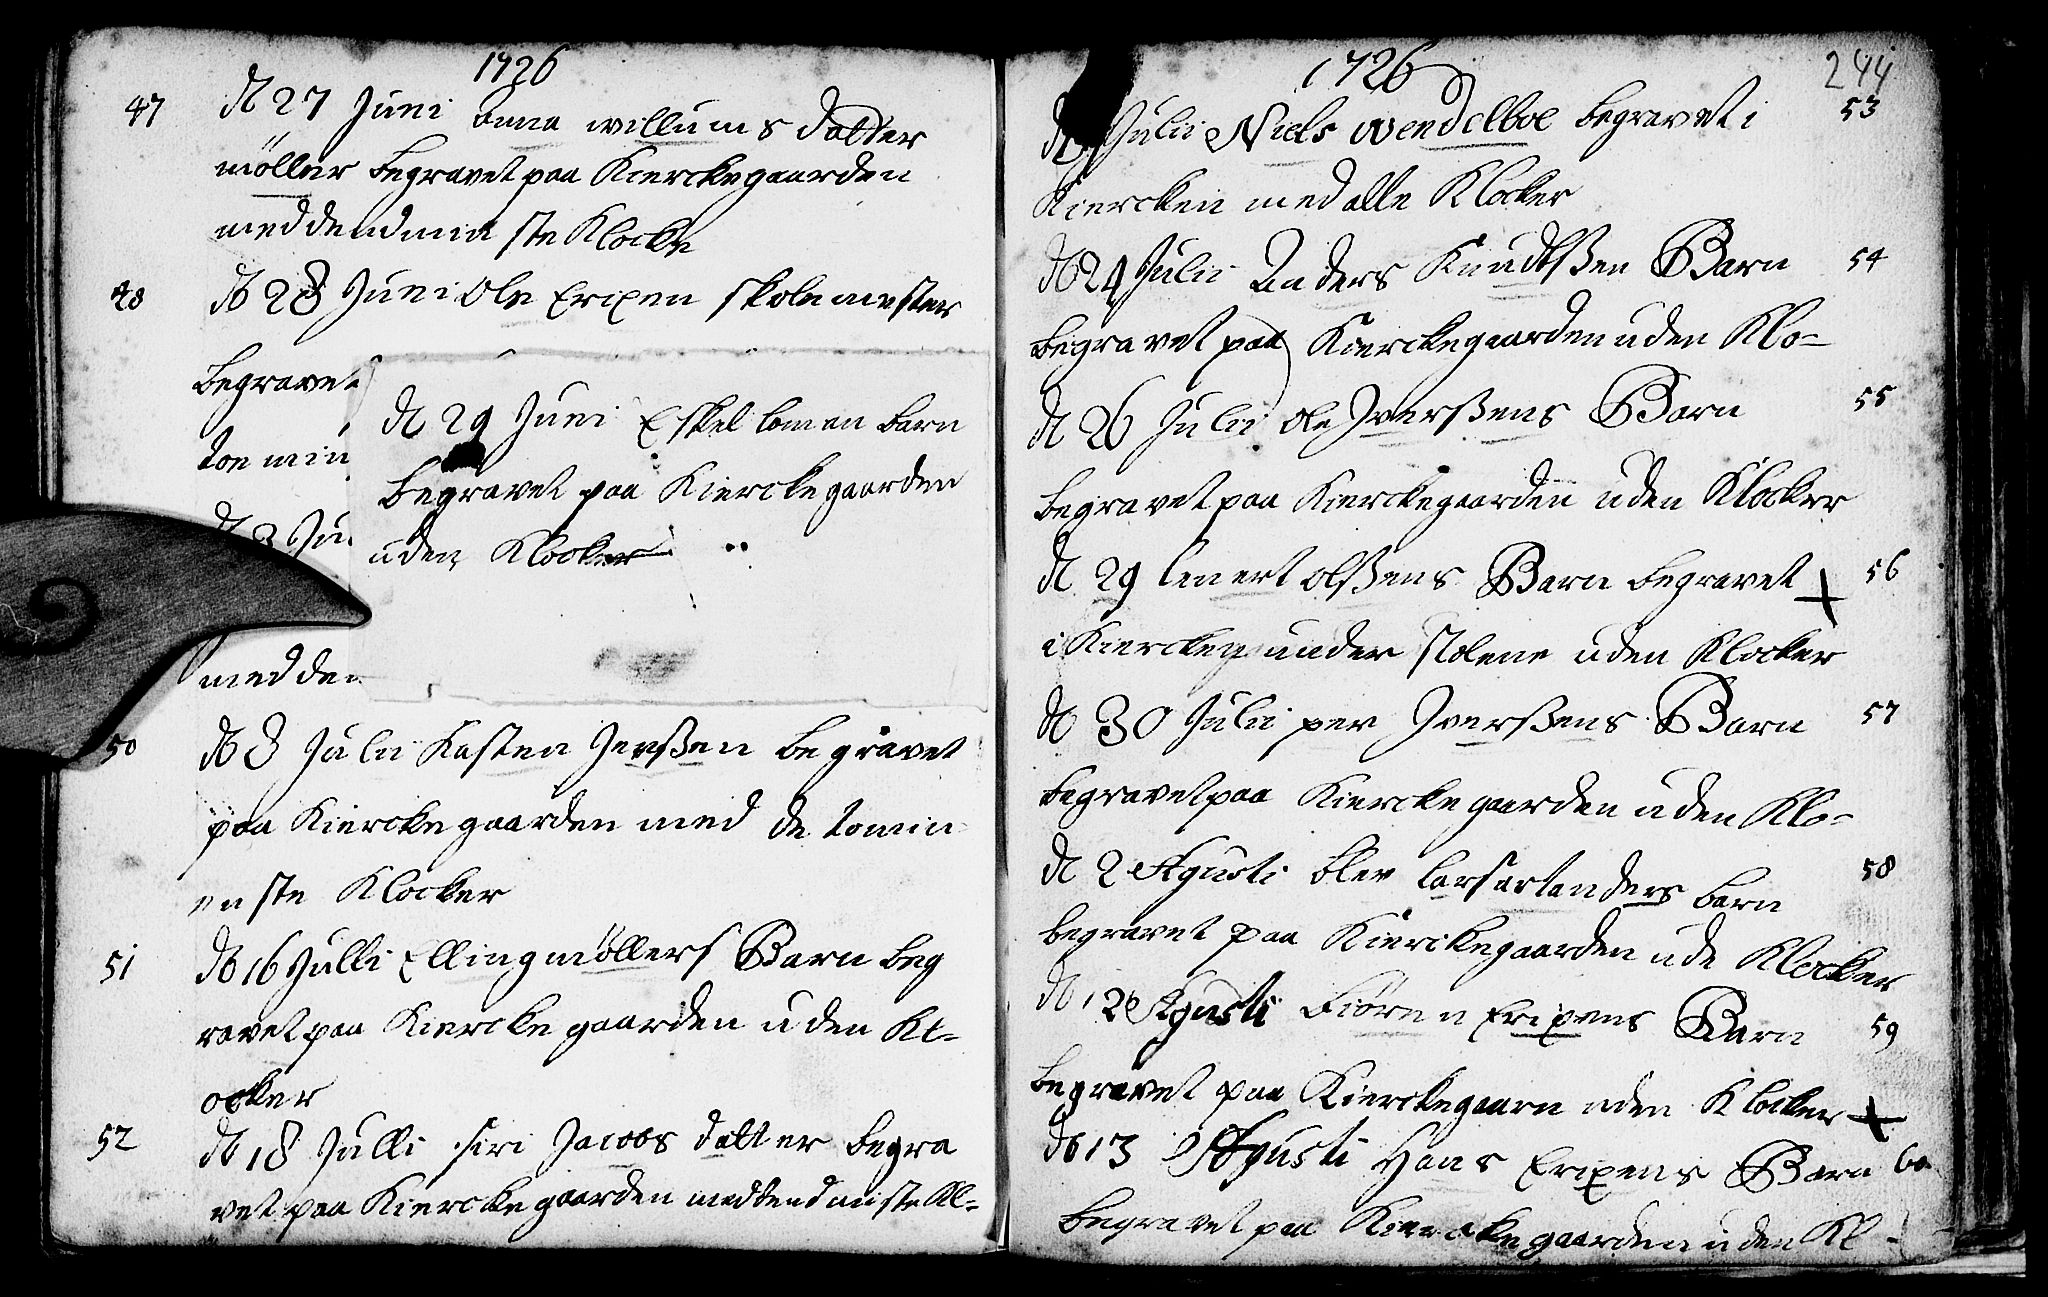 1726
47 d 27 Juni Anna willums datter
möller begravet paa Kierckegaarden
med dend minste Klocke
48 d 28 Juni Ole Erixen skolemester
begravet
toe min
d 29 Juni Eskel lomen barn
begravet paa Kierckegaarden
uden Klocker
d 3 Ju
med den
50 d 8 Julii Kasten Jenßen begravet
paa Kierckegaarden med de to min
enste Klocker
51 d 16 Julli Elling möllers Barn beg
ravet paa Kierckegaarden uden Kl-
ocker
52 d 18 Julli siri Jacobs datter begra
vet paa Kierckegaarden med dend miste Kl-
1726
244
d Julii Niels Wendelboe begravet i 53
Kiercken med alle Klocker
d 24 Julii Anders Knudtßen Barn 54
begravet paa Kierckegaarden uden Klo-
d 26 Julii Ole Iverßens Barn 55
begravet paa Kierckegaarden uden Klocker
d 29 lenert olßens Barn begravet 56
i Kiercken under stolene uden Klocker
d 30 Julii per Iverßens Barn 57
begravet paa Kierckegaarden uden Klo-
d 2 Agusti blev lars anders barn 58
begravet paa Kierckegaarden ude Klocker
d 12 Agusti Fiören Erixens Barn 59
begravet paa Kierckegaarn uden Klocker
d 13 Agusti Hans Erixens Barn 60
begravet paa Kierckegaarden uden Kl-